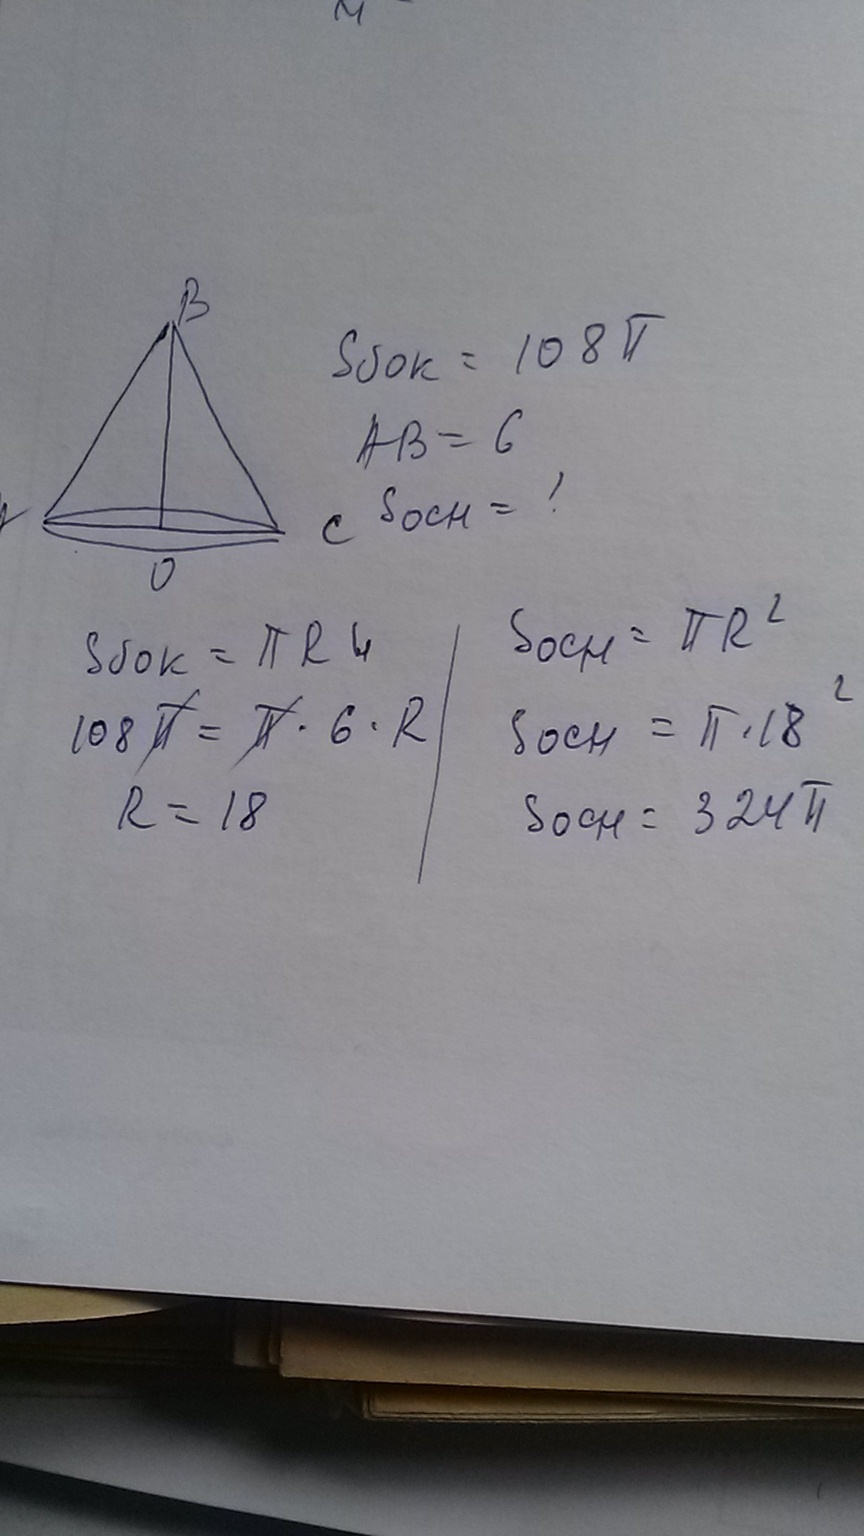 B
Sбок = 108π
AB = 6
C Sосн = !
O
Sбок = πRh
108π = π · 6 · R
R = 18
Sосн = πR²
Sосн = π·18²
Sосн = 324π